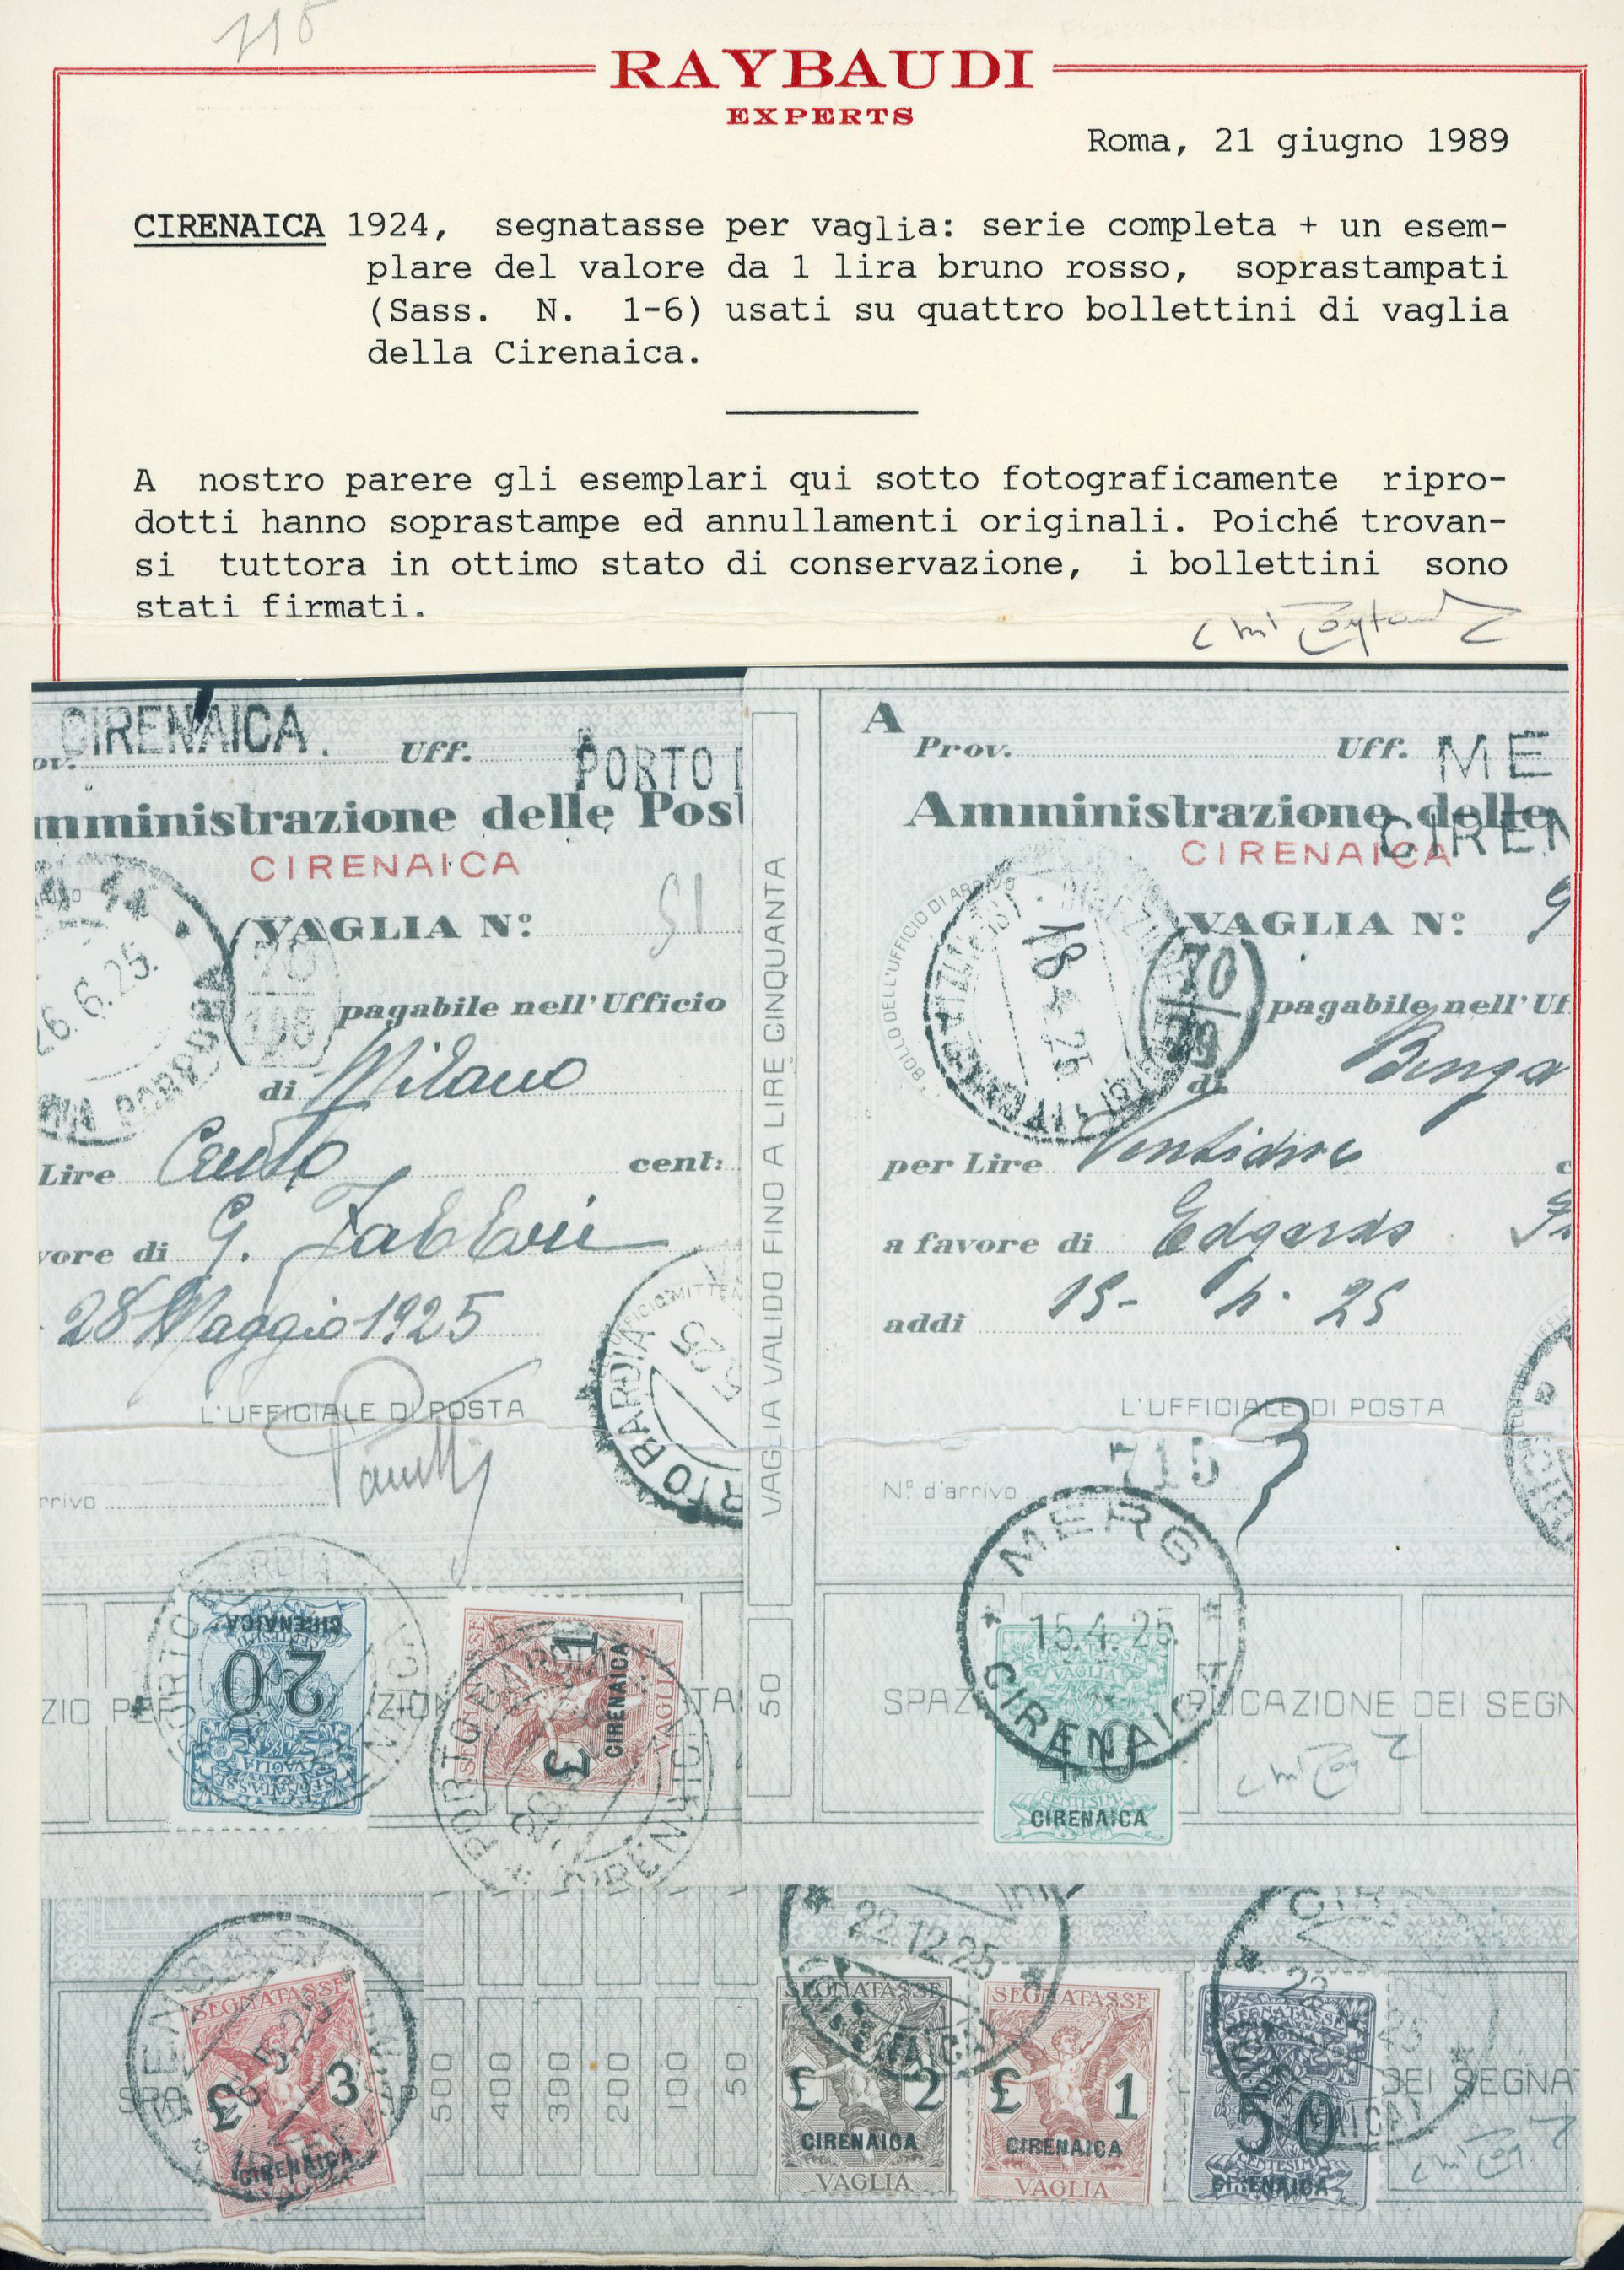 115
RAYBAUDI
EXPERTS
Roma, 21 giugno 1989
CIRENAICA 1924, segnatasse per vaglia: serie completa + un esem-
plare del valore da 1 lira bruno rosso, soprastampati
(Sass. N. 1-6) usati su quattro bollettini di vaglia
della Cirenaica.
A nostro parere gli esemplari qui sotto fotograficamente ripro-
dotti hanno soprastampe ed annullamenti originali. Poiché trovan-
si tuttora in ottimo stato di conservazione, i bollettini sono
stati firmati.
CIRENAICA.
ov. Uff. PORTO
mministrazione delle Post
CIRENAICA
VAGLIA Nº 51
26.6.25.
pagabile nell'Ufficio
di Milano
Lire Cento cent:
vore di G. Fabbri
28 Maggio 1925
L'UFFICIALE DI POSTA
rrivo
RTO BARDIA
VAGLIA VALIDO FINO A LIRE CINQUANTA
50
A
Prov. Uff. ME
Amministrazione delle
CIREN
CIRENAICA
VAGLIA Nº 9
BOLLO DELL'UFFICIO DI ARRIVO
18 4 25
70
pagabile nell'Uf
di Benga
per Lire
a favore di Edgardo
addì 15- 4. 25
L'UFFICIALE DI POSTA
715
Nº d'arrivo
MERG
15.4.25.
CIRENAICA
SEGNATASSE
VAGLIA
40
CENTESIMI
CIRENAICA
SPAZ PLICAZIONE DEI SEGN
ZIO PER ZION TA
PORTO BARDIA
CIRENAICA
20
SEGNATASSE
VAGLIA
SEGNATASSE
1
3
CIRENAICA
VAGLIA
PORTO BARDIA
CIRENAICA
SPA
SEGNATASSE
£ 3
CIRENAICA
VAGLIA
500
400
300
200
100
50
22.12.25
SEGNATASSE
£ 2
CIRENAICA
VAGLIA
SEGNATASSE
£ 1
CIRENAICA
VAGLIA
SEGNATASSE
VAGLIA
50
CENTESIMI
CIRENAICA
DEI SEGNA